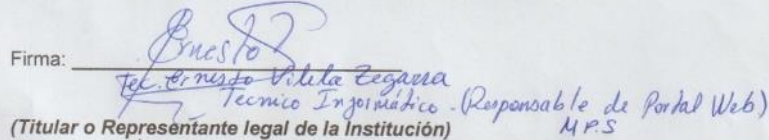 Firma: Ernesto
Tec. Ernesto Vilela Zegarra
Tecnico Informático - (Responsable de Portal Web)
M.P.S
(Titular o Representante legal de la Institución)